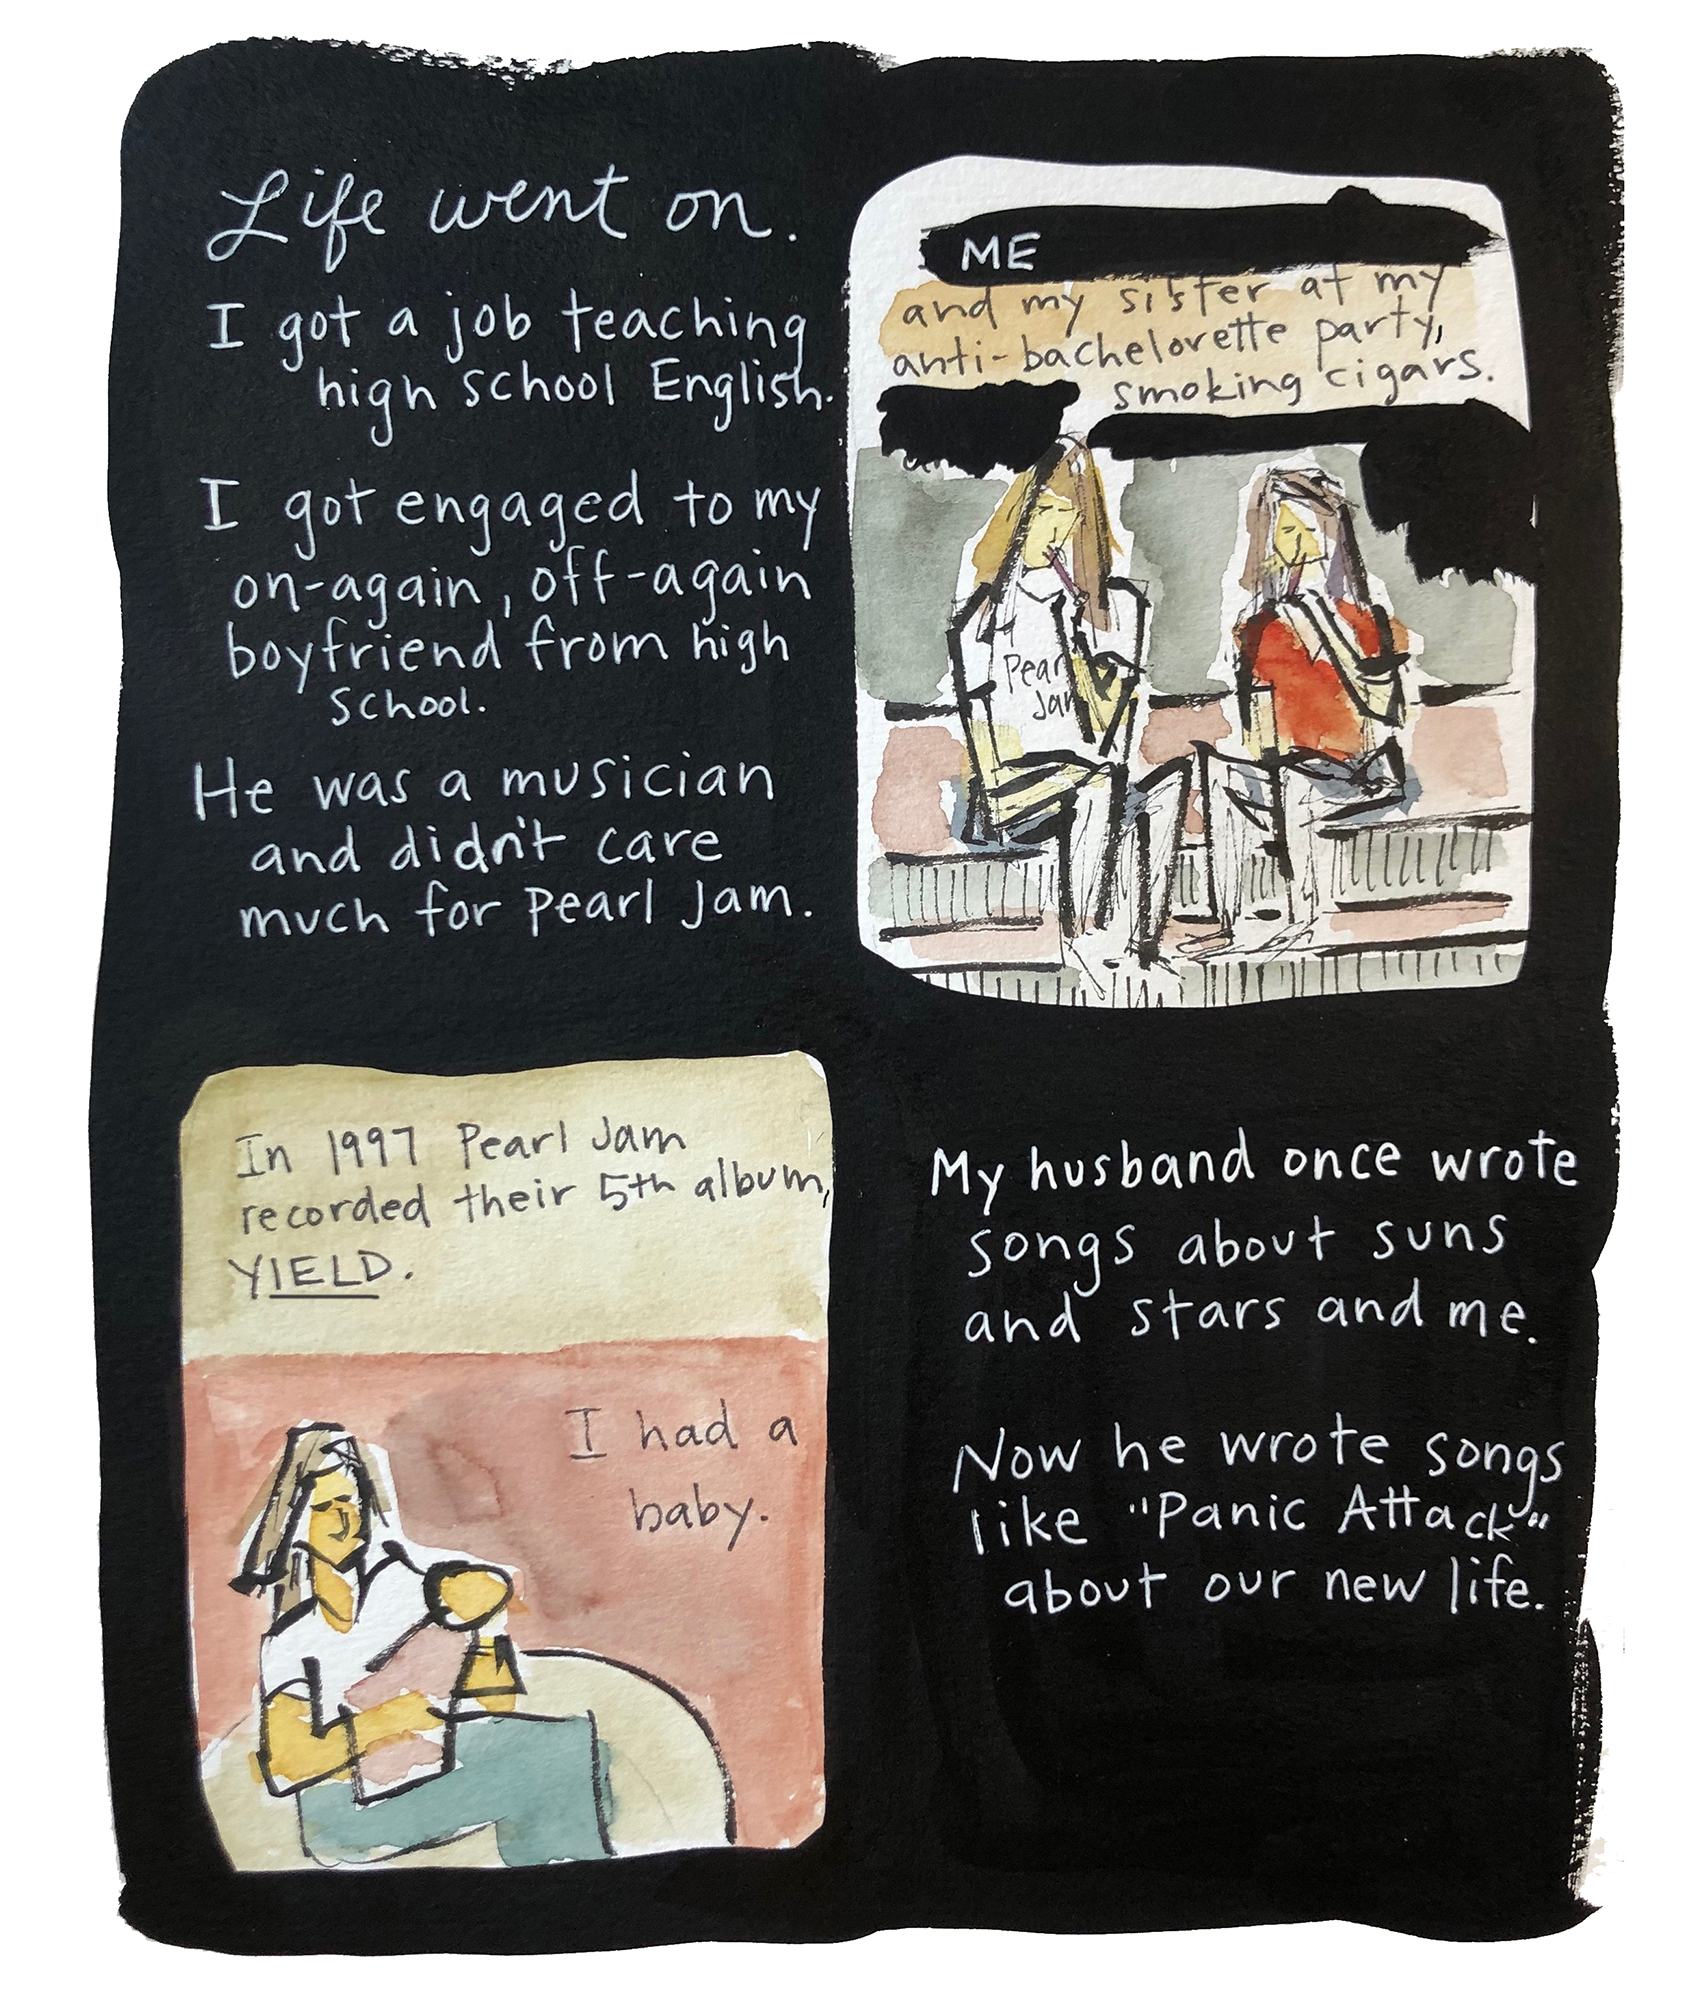 Life went on.
I got a job teaching
high school English.
I got engaged to my
on-again, off-again
boyfriend from high
school.
He was a musician
and didn't care
much for Pearl Jam.
ME
and my sister at my
anti-bachelorette party,
smoking cigars.
Pearl
Jam
In 1997 Pearl Jam
recorded their 5th album,
YIELD.
I had a
baby.
My husband once wrote
songs about suns
and stars and me.
Now he wrote songs
like "Panic Attack"
about our new life.